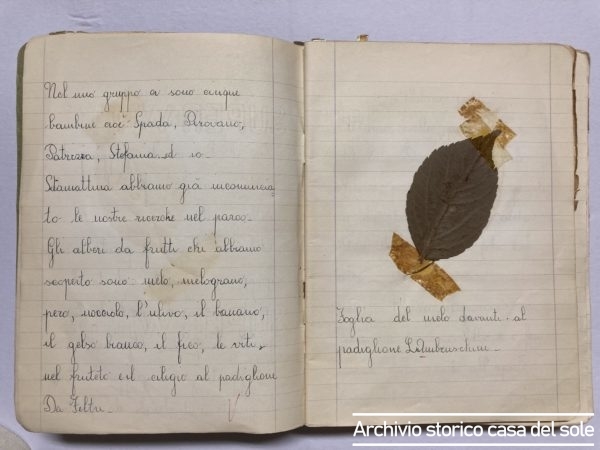 Nel mio gruppo ci sono cinque
bambine cioè Spada, Pirovano,
Patrizia, Stefania ed io.
Stamattina abbiamo già incomincia-
to le nostre ricerche nel parco.
Gli alberi da frutti che abbiamo
scoperto sono: melo, melograno,
pero, nocciolo, l'ulivo, il banano,
il gelso bianco, il fico, le viti,
nel frutteto e il ciliegio al padiglione
Da Feltre.
Foglia del melo davanti al
padiglione Lambruschini.
Archivio storico casa del sole